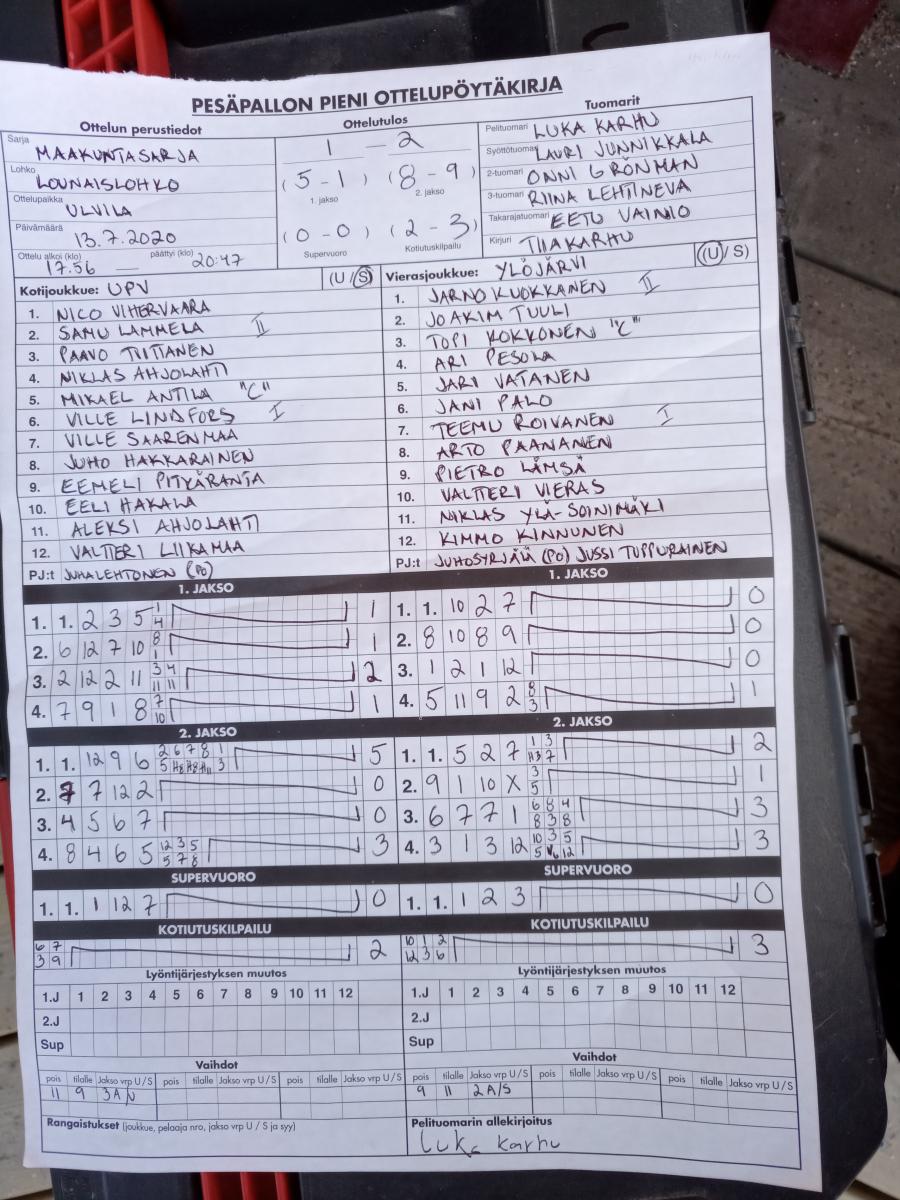 PESÄPALLON PIENI OTTELUPÖYTÄKIRJA
Ottelun perustiedot
Sarja MAAKUNTASARJA
Lohko LOUNAISLOHKO
Ottelupaikka ULVILA
Päivämäärä 13.7.2020
Ottelu alkoi (klo) 17.56 — päättyi (klo) 20:47
Ottelutulos
1 - 2
(5-1) (8-9)
1. jakso 2. jakso
(0-0) (2-3)
Supervuoro Kotiutuskilpailu
Tuomarit
Pelituomari LUKA KARHU
Syöttötuomari LAURI JUNNIKKALA
2-tuomari ONNI GRÖNMAN
3-tuomari RIINA LEHTINEVA
Takarajatuomari EETU VAINIO
Kirjuri TIIA KARHU
Kotijoukkue: UPV (U/S)
1. NICO VIHERVAARA
2. SAMU LAMMELA II
3. PAAVO TIITIANEN
4. NIKLAS AHJOLAHTI
5. MIKAEL ANTILA "C"
6. VILLE LINDFORS I
7. VILLE SAARENMAA
8. JUHO HAKKARAINEN
9. EEMELI PITKÄRANTA
10. EELI HAKALA
11. ALEKSI AHJOLAHTI
12. VALTTERI LIIKAMAA
PJ:t JUHA LEHTONEN (PO)
Vierasjoukkue: YLÖJÄRVI (U/S)
1. JARNO KUOKKANEN II
2. JOAKIM TUULI
3. TOPI KOKKONEN "C"
4. ARI PESOLA
5. JARI VATANEN
6. JANI PALO
7. TEEMU ROIVANEN I
8. ARTO PAANANEN
9. PIETRO LÄMSÄ
10. VALTTERI VIERAS
11. NIKLAS YLÄ-SOINIMÄKI
12. KIMMO KINNUNEN
PJ:t JUHO SYRJÄLÄ (PO) JUSSI TUPPURAINEN
1. JAKSO
1. 1. 2 3 5 1 4 1
2. 6 12 7 10 8 1 1
3. 2 12 2 11 3 4 11 11 2
4. 7 9 1 8 7 10 1
1. JAKSO
1. 1. 10 2 7 0
2. 8 10 8 9 0
3. 1 2 1 12 0
4. 5 11 9 2 8 3 1
2. JAKSO
1. 1. 12 9 6 2 6 7 8 1 5 3 5
2. 7 7 12 2 0
3. 4 5 6 7 0
4. 8 4 6 5 12 3 5 5 7 8 3
2. JAKSO
1. 1. 5 2 7 1 3 7 2
2. 9 1 10 X 3 5 1
3. 6 7 7 1 6 8 4 8 3 8 3
4. 3 1 3 12 10 3 5 5 12 3
SUPERVUORO
1. 1. 1 12 7 0
SUPERVUORO
1. 1. 1 2 3 0
KOTIUTUSKILPAILU
6 7
3 9 2
KOTIUTUSKILPAILU
10 1 2
12 3 6 3
Lyöntijärjestyksen muutos
1.J 1 2 3 4 5 6 7 8 9 10 11 12
2.J
Sup
Lyöntijärjestyksen muutos
1.J 1 2 3 4 5 6 7 8 9 10 11 12
2.J
Sup
Vaihdot
pois tilalle Jakso vrp U/S pois tilalle Jakso vrp U/S pois tilalle Jakso vrp U/S
11 9 3A/U
Vaihdot
pois tilalle Jakso vrp U/S pois tilalle Jakso vrp U/S pois tilalle Jakso vrp U/S
9 11 2A/S
Rangaistukset (joukkue, pelaaja nro, jakso vrp U / S ja syy)
Pelituomarin allekirjoitus
Luka Karhu